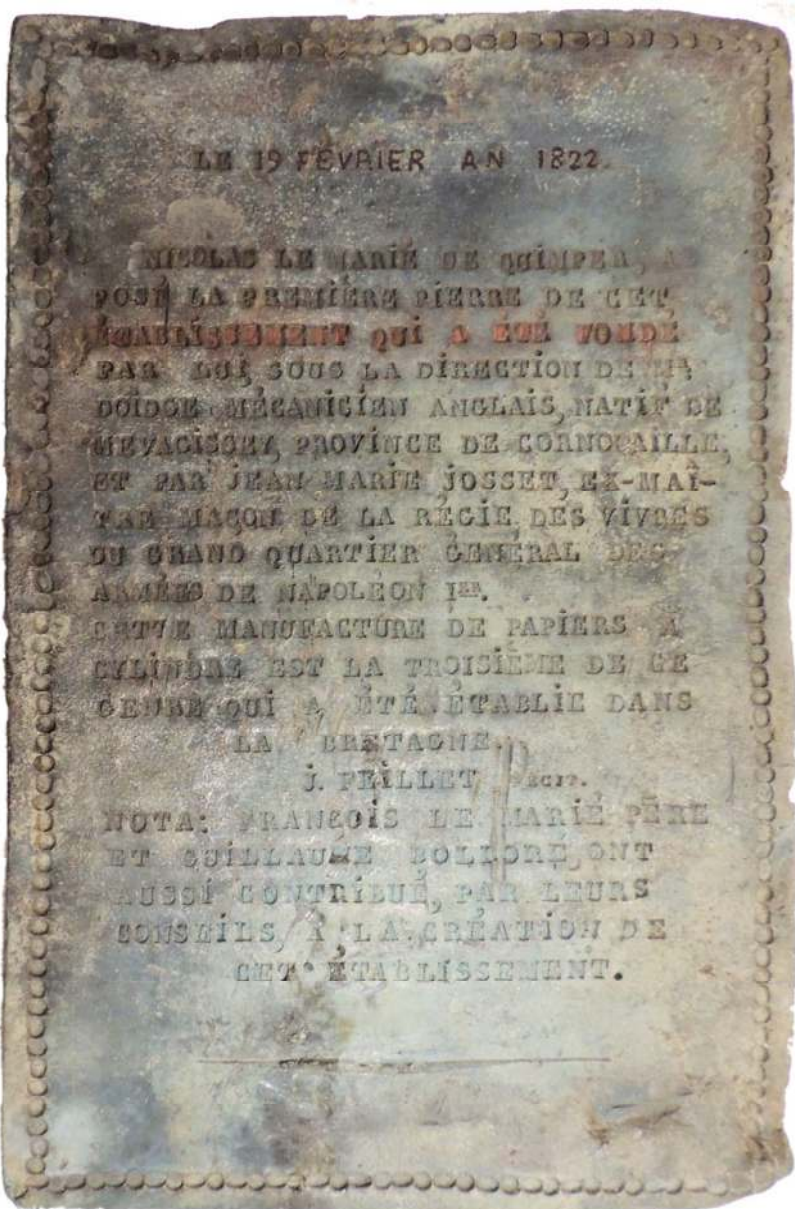 LE 19 FÉVRIER AN 1822.
NICOLAS LE MARIÉ DE QUIMPER, A
POSÉ LA PREMIÈRE PIERRE DE CET
ÉTABLISSEMENT QUI A ÉTÉ FONDÉ
PAR LUI, SOUS LA DIRECTION DE Mr
DOIDGE MÉCANICIEN ANGLAIS, NATIF DE
MEVAGISSEY, PROVINCE DE CORNOUAILLE,
ET PAR JEAN MARIE JOSSET, EX-MAÎ-
TRE MAÇON DE LA RÉGIE DES VIVRES
DU GRAND QUARTIER GÉNÉRAL DES
ARMÉES DE NAPOLÉON IER.
CETTE MANUFACTURE DE PAPIERS A
CYLINDRE EST LA TROISIÈME DE CE
GENRE QUI A ÉTÉ ÉTABLIE DANS
LA BRETAGNE.
J. FEILLET FECIT.
NOTA: FRANÇOIS LE MARIÉ PÈRE
ET GUILLAUME BOLLORÉ, ONT
AUSSI CONTRIBUÉ, PAR LEURS
CONSEILS, À LA CRÉATION DE
CET ÉTABLISSEMENT.